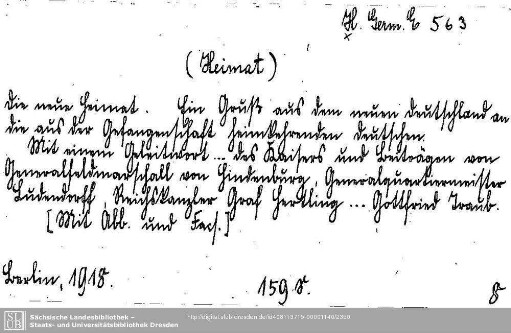 H. Germ. C 563
x
(Heimat)
Die neue Heimat. Ein Gruß aus dem neuen Deutschland an
die aus der Gefangenschaft heimkehrenden Deutschen.
Mit einem Geleitwort ... des Kaisers und Beiträgen von
Generalfeldmarschall von Hindenburg, Generalquartiermeister
Ludendorff, Reichskanzler Graf Hertling ... Gottfried Traub.
[Mit Abb. und Facs.]
Berlin, 1918.
159 S.
8
SLUB
Sächsische Landesbibliothek –
Staats- und Universitätsbibliothek Dresden